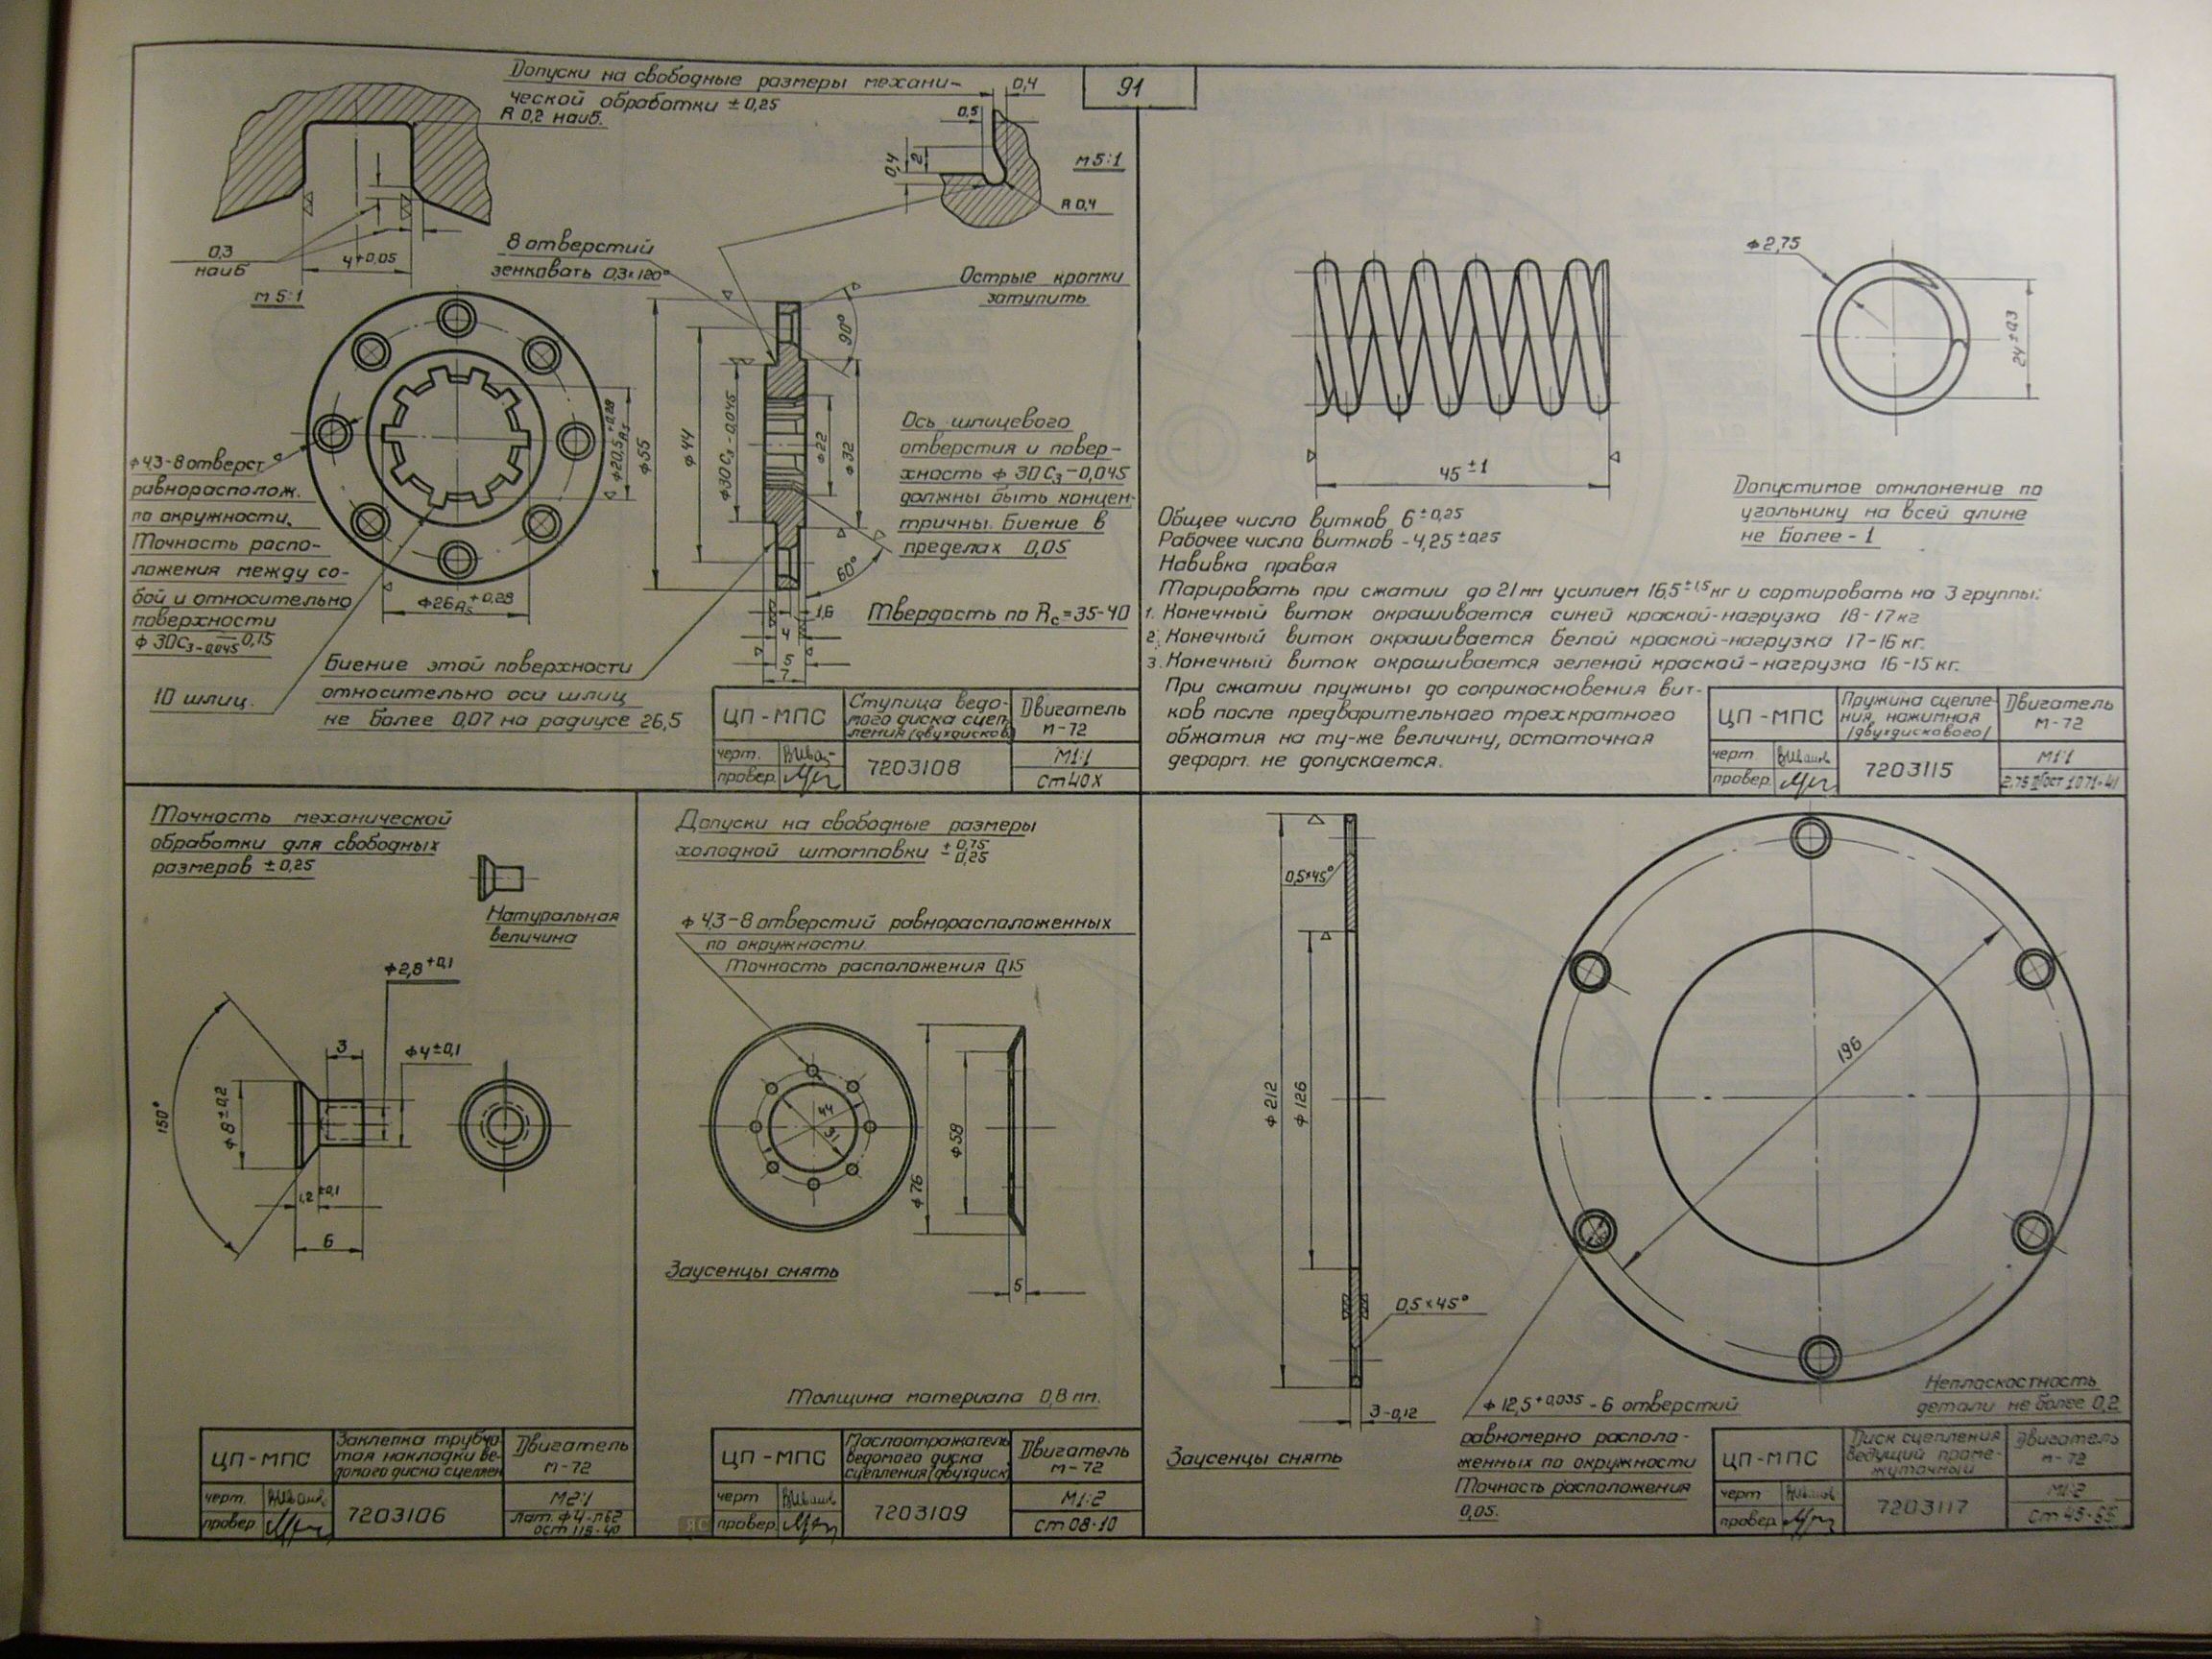 91
Допуски на свободные размеры механи-
ческой обработки ± 0,25
R 0,2 наиб.
0,3
наиб
4+0,05
М 5:1
0,4
0,5
0,4
2
М 5:1
R 0,4
8 отверстий
зенковать 0,3×120°
Острые кромки
затупить
90°
ф 4,3-8 отверст
равнорасполож.
по окружности.
Точность распо-
ложения между со-
бой и относительно
поверхности
ф 30С3-0,045 0,15
10 шлиц.
ф20,5А5+0,28
ф55
ф44
ф30С3-0,045
ф22
ф32
ф26А5+0,28
60°
1,6
4
5
7
Ось шлицевого
отверстия и повер-
хность ф 30С3-0,045
должны быть концен-
тричны. Биение в
пределах 0,05
Твердость по Rс=35-40
Биение этой поверхности
относительно оси шлиц
не более 0,07 на радиусе 26,5
ЦП-МПС
Ступица ведо-
мого диска сцеп-
ления (двухдисков)
Двигатель
М-72
черт.
провер.
7203108
М1:1
Ст 40Х
ф2,75
24±0,3
45±1
Допустимое отклонение по
угольнику на всей длине
не более-1
Общее число витков 6±0,25
Рабочее число витков-4,25±0,25
Навивка правая
Тарировать при сжатии до 21мм усилием 16,5±1,5кг и сортировать на 3 группы:
1. Конечный виток окрашивается синей краской-нагрузка 18-17кг
2. Конечный виток окрашивается белой краской-нагрузка 17-16кг.
3. Конечный виток окрашивается зеленой краской-нагрузка 16-15кг.
При сжатии пружины до соприкосновения вит-
ков после предварительного трехкратного
обжатия на ту-же величину, остаточная
деформ. не допускается.
ЦП-МПС
Пружина сцепле-
ния, нажимная
/двухдискового/
Двигатель
М-72
черт
провер.
7203115
М1:1
Точность механической
обработки для свободных
размеров ±0,25
Натуральная
величина
ф2,8+0,1
3
ф4±0,1
150°
ф8±0,2
1,2±0,1
6
ЦП-МПС
Заклепка трубча-
тая накладки ве-
домого диска сцеплен
Двигатель
М-72
черт.
провер.
7203106
М2:1
Лат. ф4-Л62
ОСТ 115-40
Допуски на свободные размеры
холодной штамповки ±0,75 0,25
ф 4,3-8 отверстий равнорасположенных
по окружности.
Точность расположения 0,15
44
31
ф76
ф58
5
Заусенцы снять
Толщина материала 0,8 мм.
ЦП-МПС
Маслоотражатель
ведомого диска
сцепления (двухдиск)
Двигатель
М-72
черт
провер.
7203109
М1:2
Ст 08-10
0,5×45°
ф212
ф126
196
0,5×45°
3-0,12
Заусенцы снять
ф 12,5+0,035-6 отверстий
равномерно располо-
женных по окружности
Точность расположения
0,05.
Неплоскостность
детали не более 0,2
ЦП-МПС
Диск сцепления
ведущий проме-
жуточный
Двигатель
М-72
черт
провер.
7203117
М1:2
Ст 45-65